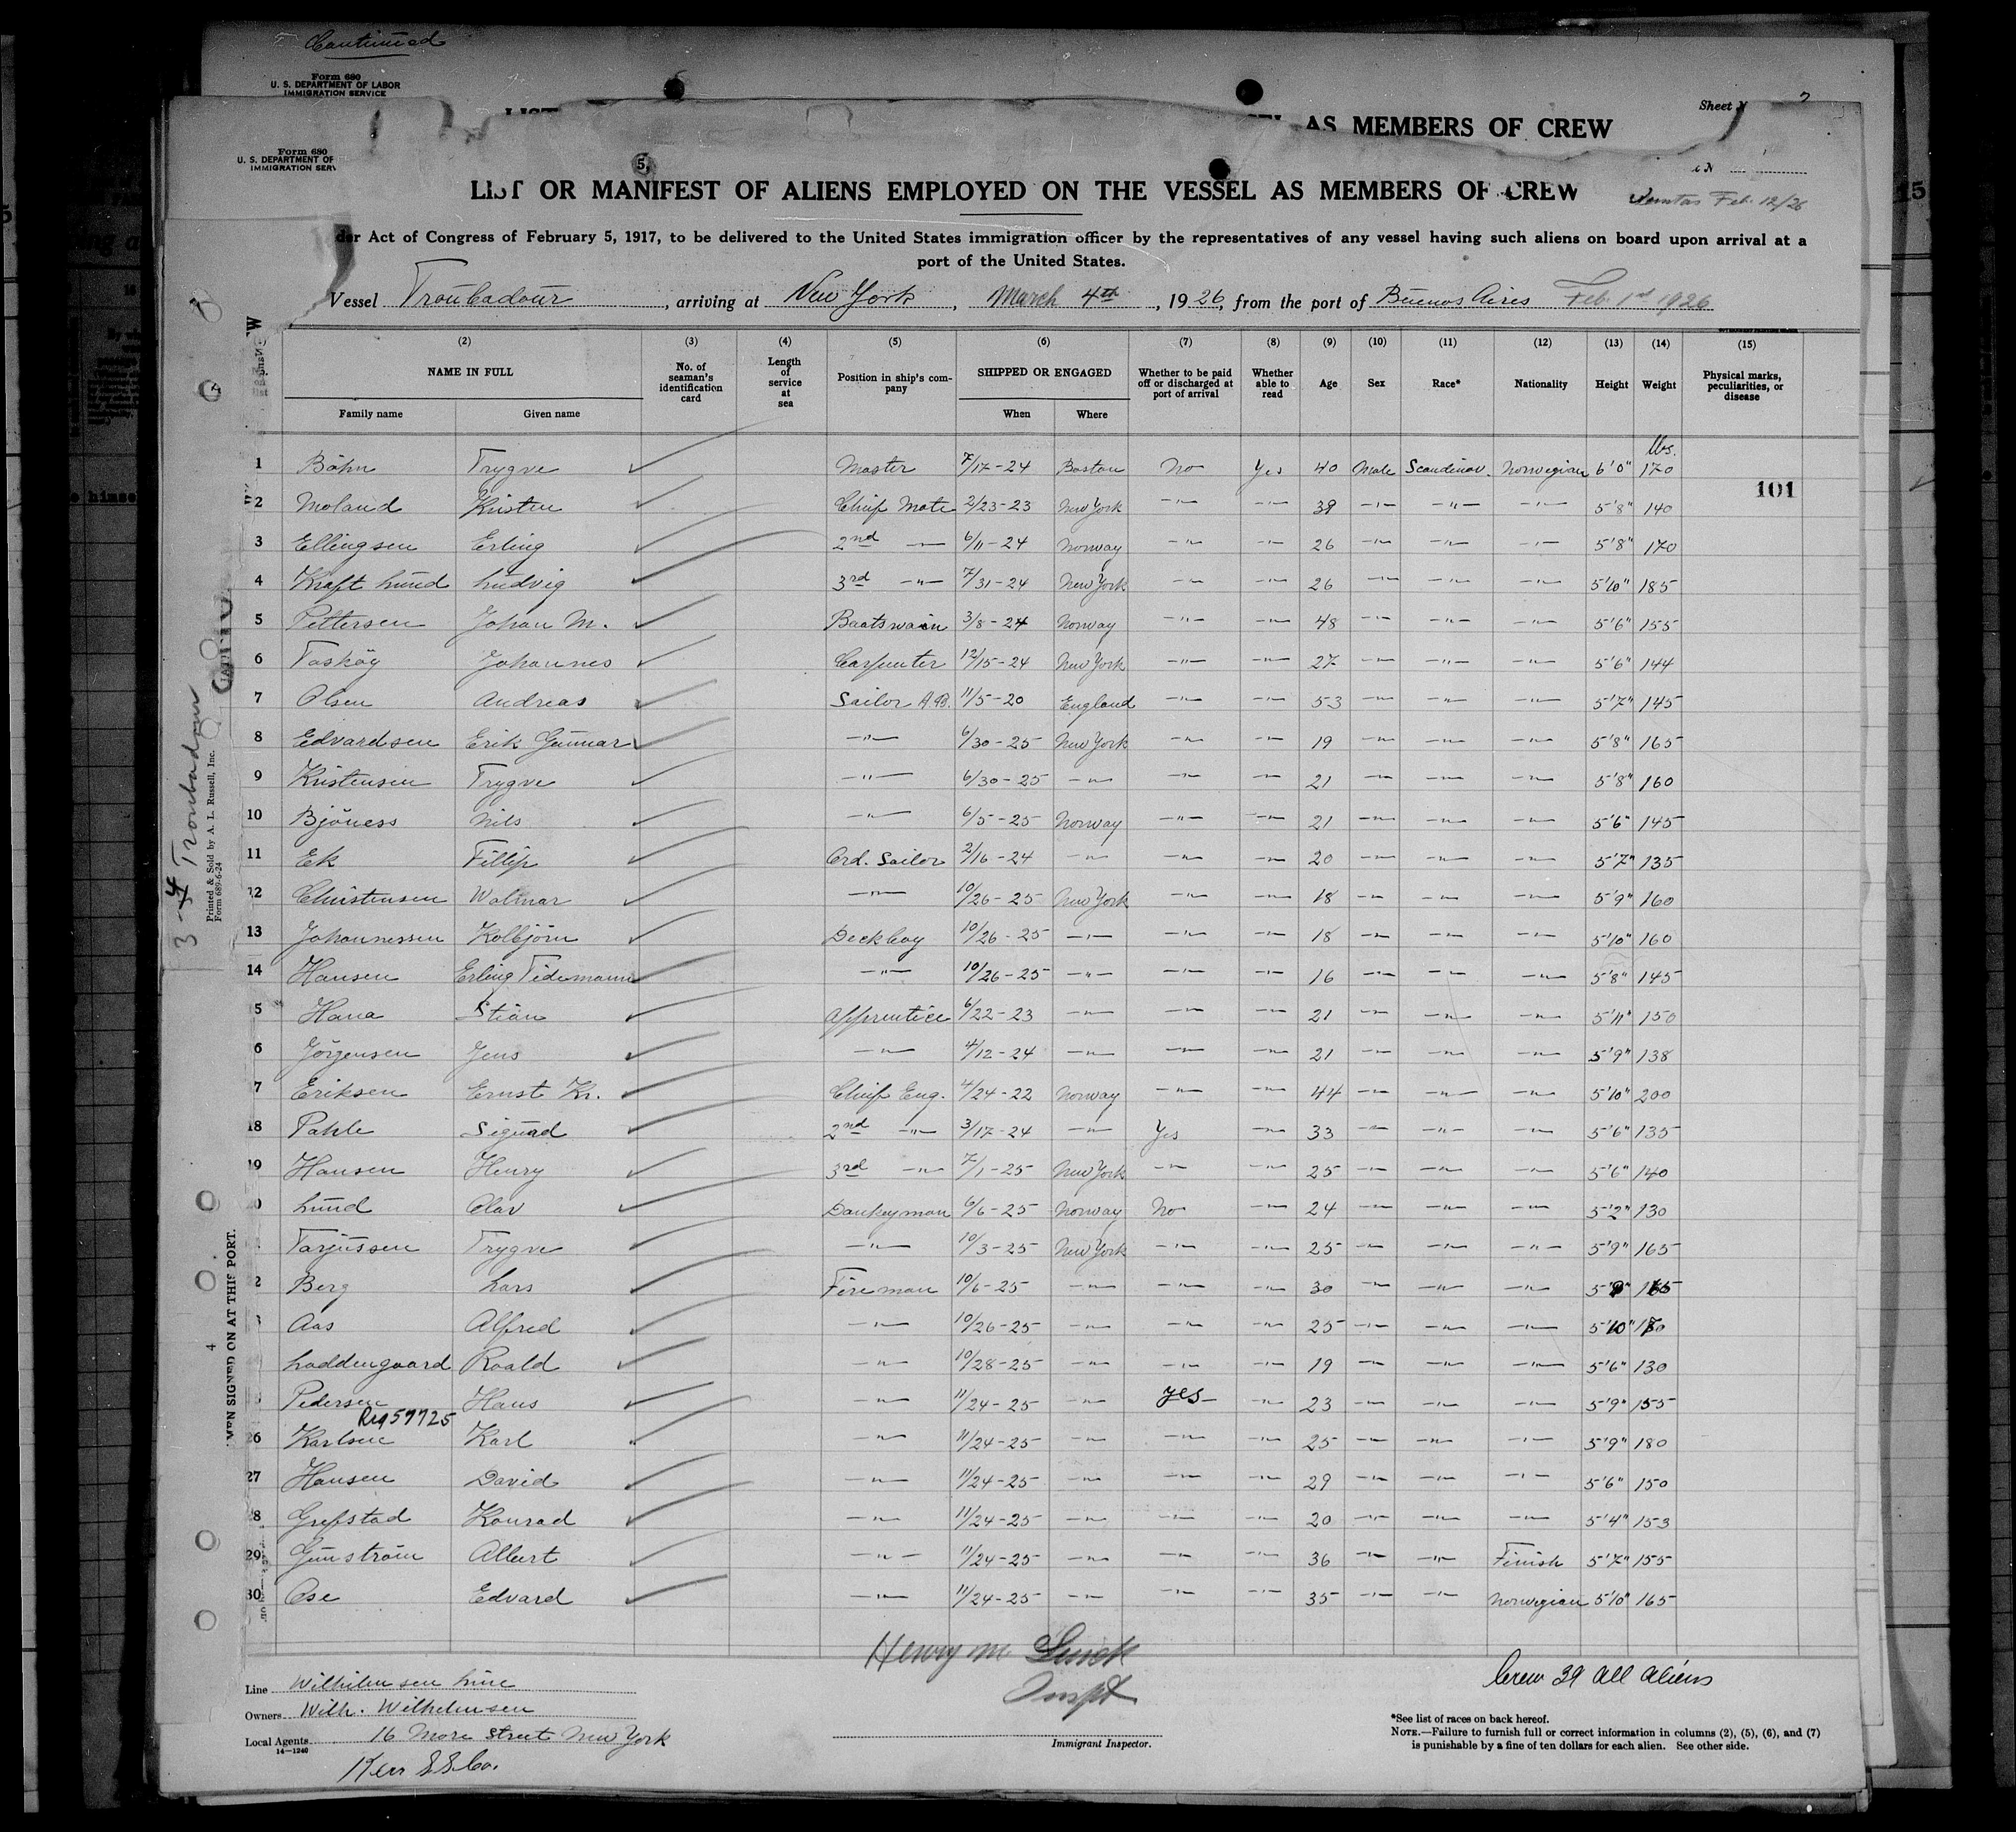 Continued
Form 680
U. S. DEPARTMENT OF LABOR
IMMIGRATION SERVICE
Sheet
AS MEMBERS OF CREW
Form 680
U. S. DEPARTMENT OF
IMMIGRATION SERV
5,
LIST OR MANIFEST OF ALIENS EMPLOYED ON THE VESSEL AS MEMBERS OF CREW
Feb. 12/26
der Act of Congress of February 5, 1917, to be delivered to the United States immigration officer by the representatives of any vessel having such aliens on board upon arrival at a
port of the United States.
Vessel Troubadour, arriving at New York, March 4th, 1926, from the port of Buenos Aires Feb. 1st 1926
(2) (3) (4) (5) (6) (7) (8) (9) (10) (11) (12) (13) (14) (15)
NAME IN FULL No. of seaman's identification card Length of service at sea Position in ship's company SHIPPED OR ENGAGED Whether to be paid off or discharged at port of arrival Whether able to read Age Sex Race* Nationality Height Weight Physical marks, peculiarities, or disease
Family name Given name When Where
lbs.
1 Böhn Trygve Master 7/17-24 Boston No Yes 40 Male Scandinav. Norwegian 6'0" 170
101
2 Moland Kristen Chief Mate 2/23-23 New York -"- -"- 39 -"- -"- -"- 5'8" 140
3 Ellingsen Erling 2nd -"- 6/11-24 Norway -"- -"- 26 -"- -"- -"- 5'8" 170
4 Kraft Lund Ludvig 3rd -"- 7/31-24 New York -"- -"- 26 -"- -"- -"- 5'10" 185
5 Pettersen Johan M. Boatswain 3/8-24 Norway -"- -"- 48 -"- -"- -"- 5'6" 155
6 Toskög Johannes Carpenter 12/15-24 New York -"- -"- 27 -"- -"- -"- 5'6" 144
7 Olsen Andreas Sailor A.B. 11/5-20 England -"- -"- 53 -"- -"- -"- 5'7" 145
8 Edvardsen Erik Gunnar -"- 6/30-25 New York -"- -"- 19 -"- -"- -"- 5'8" 165
9 Kristensen Trygve -"- 6/30-25 -"- -"- -"- 21 -"- -"- -"- 5'8" 160
10 Bjöness Nils -"- 6/5-25 Norway -"- -"- 21 -"- -"- -"- 5'6" 145
11 Ek Fillip Ord. Sailor 2/16-24 -"- -"- -"- 20 -"- -"- -"- 5'7" 135
12 Christensen Walmar -"- 10/26-25 New York -"- -"- 18 -"- -"- -"- 5'9" 160
13 Johannessen Kolbjörn Deckboy 10/26-25 -"- -"- -"- 18 -"- -"- -"- 5'10" 160
14 Hansen Erling Tidemann -"- 10/26-25 -"- -"- -"- 16 -"- -"- -"- 5'8" 145
5 Hana Stian Apprentice 6/22-23 -"- -"- -"- 21 -"- -"- -"- 5'11" 150
6 Jörgensen Jens -"- 4/12-24 -"- -"- -"- 21 -"- -"- -"- 5'9" 138
7 Eriksen Ernst Kr. Chief Eng. 4/24-22 Norway -"- -"- 44 -"- -"- -"- 5'10" 200
18 Pahle Sigurd 2nd -"- 3/17-24 -"- Yes -"- 33 -"- -"- -"- 5'6" 135
19 Hansen Henry 3rd -"- 7/1-25 New York -"- -"- 25 -"- -"- -"- 5'6" 140
0 Lund Olav Donkeyman 6/6-25 Norway No -"- 24 -"- -"- -"- 5'2" 130
Tarjussen Trygve -"- 10/3-25 New York -"- -"- 25 -"- -"- -"- 5'9" 165
2 Berg Lars Fireman 10/6-25 -"- -"- -"- 30 -"- -"- -"- 5'9" 165
3 Aas Alfred -"- 10/26-25 -"- -"- -"- 25 -"- -"- -"- 5'10"
Loddengaard Roald -"- 10/28-25 -"- -"- -"- 19 -"- -"- -"- 5'6" 130
Pedersen Hans -"- 11/24-25 -"- yes -"- 23 -"- -"- -"- 5'9" 155
Reg 59725
26 Karlsen Karl -"- 11/24-25 -"- -"- -"- 25 -"- -"- -"- 5'9" 180
27 Hansen David -"- 11/24-25 -"- -"- -"- 29 -"- -"- -"- 5'6" 150
28 Grefstad Konrad -"- 11/24-25 -"- -"- -"- 20 -"- -"- -"- 5'4" 153
29 Gunström Albert -"- 11/24-25 -"- -"- -"- 36 -"- -"- Finish 5'7" 155
30 Ose Edvard -"- 11/24-25 -"- -"- -"- 35 -"- -"- Norwegian 5'10" 165
Henry M
Inspt
Immigrant Inspector.
Crew 39 all aliens
Line Wilhelmsen Line
Owners Wilh. Wilhelmsen
Local Agents 16 More Street New York
14-1240
Kerr S S Co.
*See list of races on back hereof.
NOTE.—Failure to furnish full or correct information in columns (2), (5), (6), and (7)
is punishable by a fine of ten dollars for each alien. See other side.
3-4 Troubadour
Printed & Sold by A. L. Russell, Inc.
Form 689-6-24
MEN SIGNED ON AT THIS PORT.
4